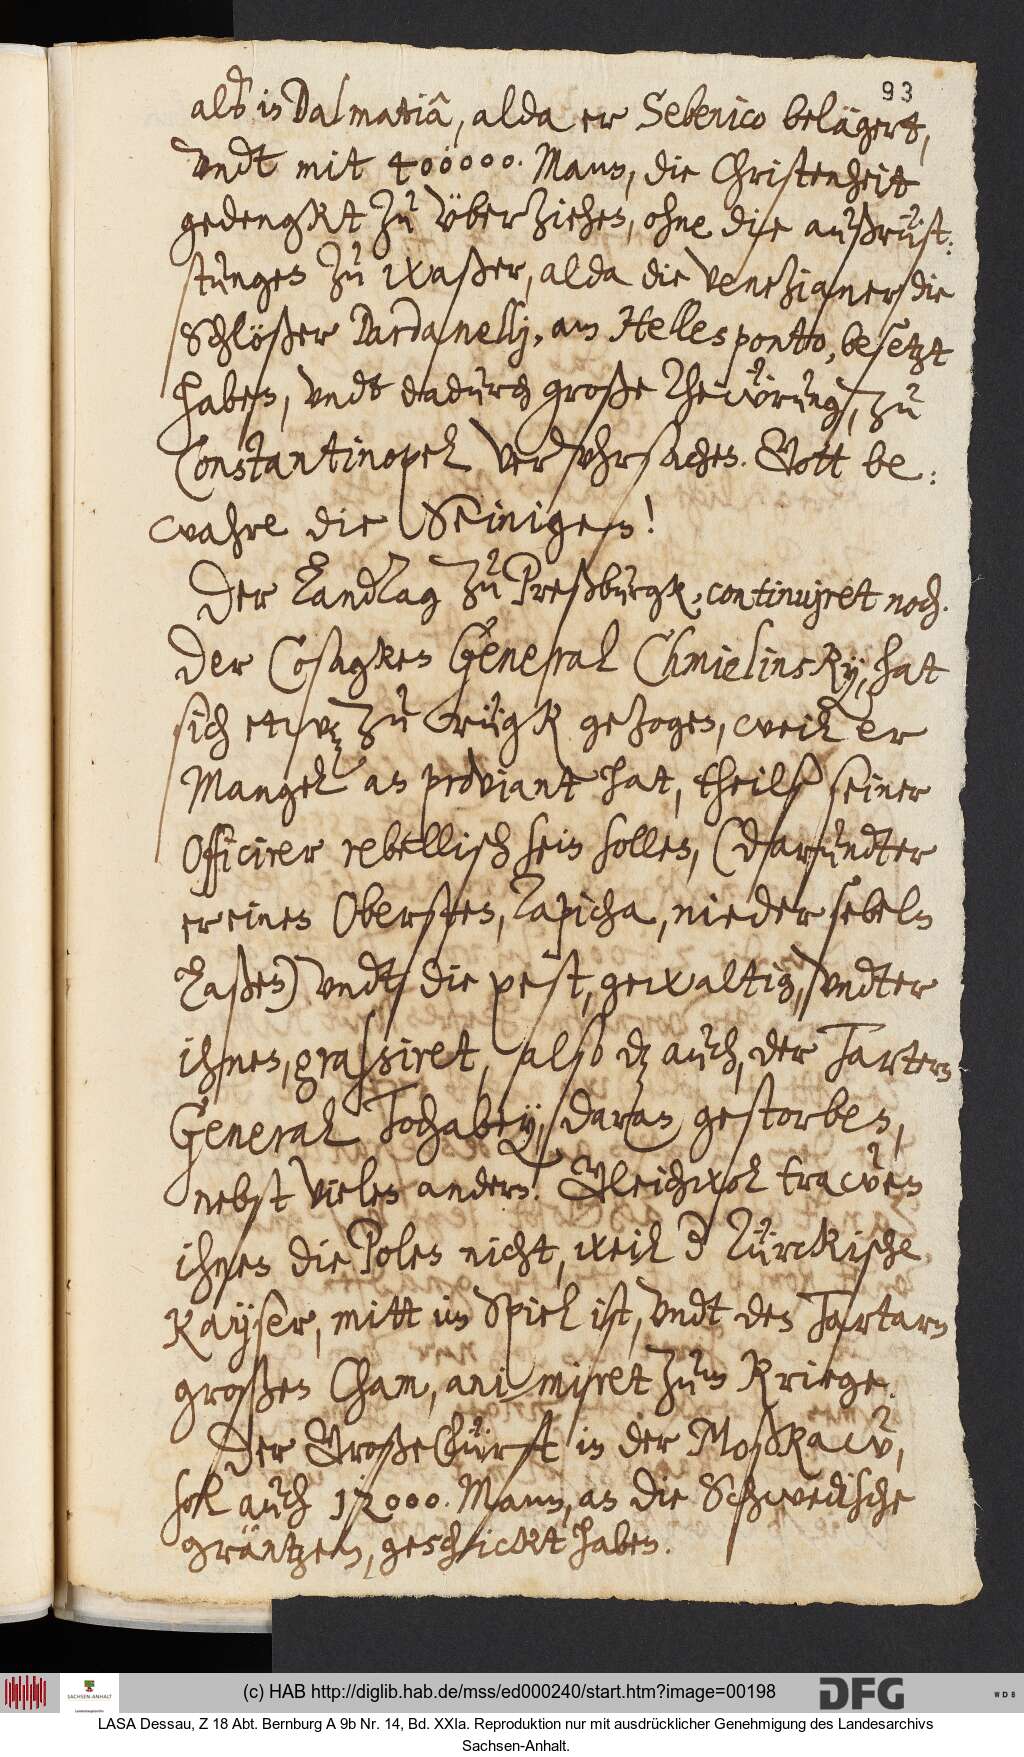 93
als in Dalmatiâ, alda er Sebenico belägert,
Vndt mit 400000. Mann, die Christenheit
gedengkt zu vberziehen, ohne die außrüst:
stungen zu waßer, alda die Venezianer die
Schlößer Dardanellj, am Hellespontto, besetzt
haben, vndt dadurch große Thewrung, zu
Constantinopel vervhrsachen. Gott be:
wahre die Seinigen!
Der Landtag zu Preßburgk, continujret noch.
Der Cosagken General Chmielinskÿ, hat
sich etwaß zu rügk gezogen, weil er
Mangel an proviant hat, theilß seiner
Officirer rebellisch sein sollen, (darundter
er einen Obersten, Lapicha, niedersebeln
laßen) vndt die pest, gewaltig, vndter
ihnen, grassiret, also dz auch, der Tartern
General Tochabey, daran gestorben,
nebst vielen andern. Gleichwol trawen
ihnen die Polen nicht, weil der Türckische
Kayser, mitt im Spiel ist, vndt den Tartarn
großen Cham, animiret zum Kriege.
Der Große Fürst in der Moßkaw,
sol auch 12000. Mann, an die Schwedische
gräntzen, geschickt haben.
SACHSEN-ANHALT
(c) HAB http://diglib.hab.de/mss/ed000240/start.htm?image=00198
DFG
WDB
LASA Dessau, Z 18 Abt. Bernburg A 9b Nr. 14, Bd. XXIa. Reproduktion nur mit ausdrücklicher Genehmigung des Landesarchivs
Sachsen-Anhalt.